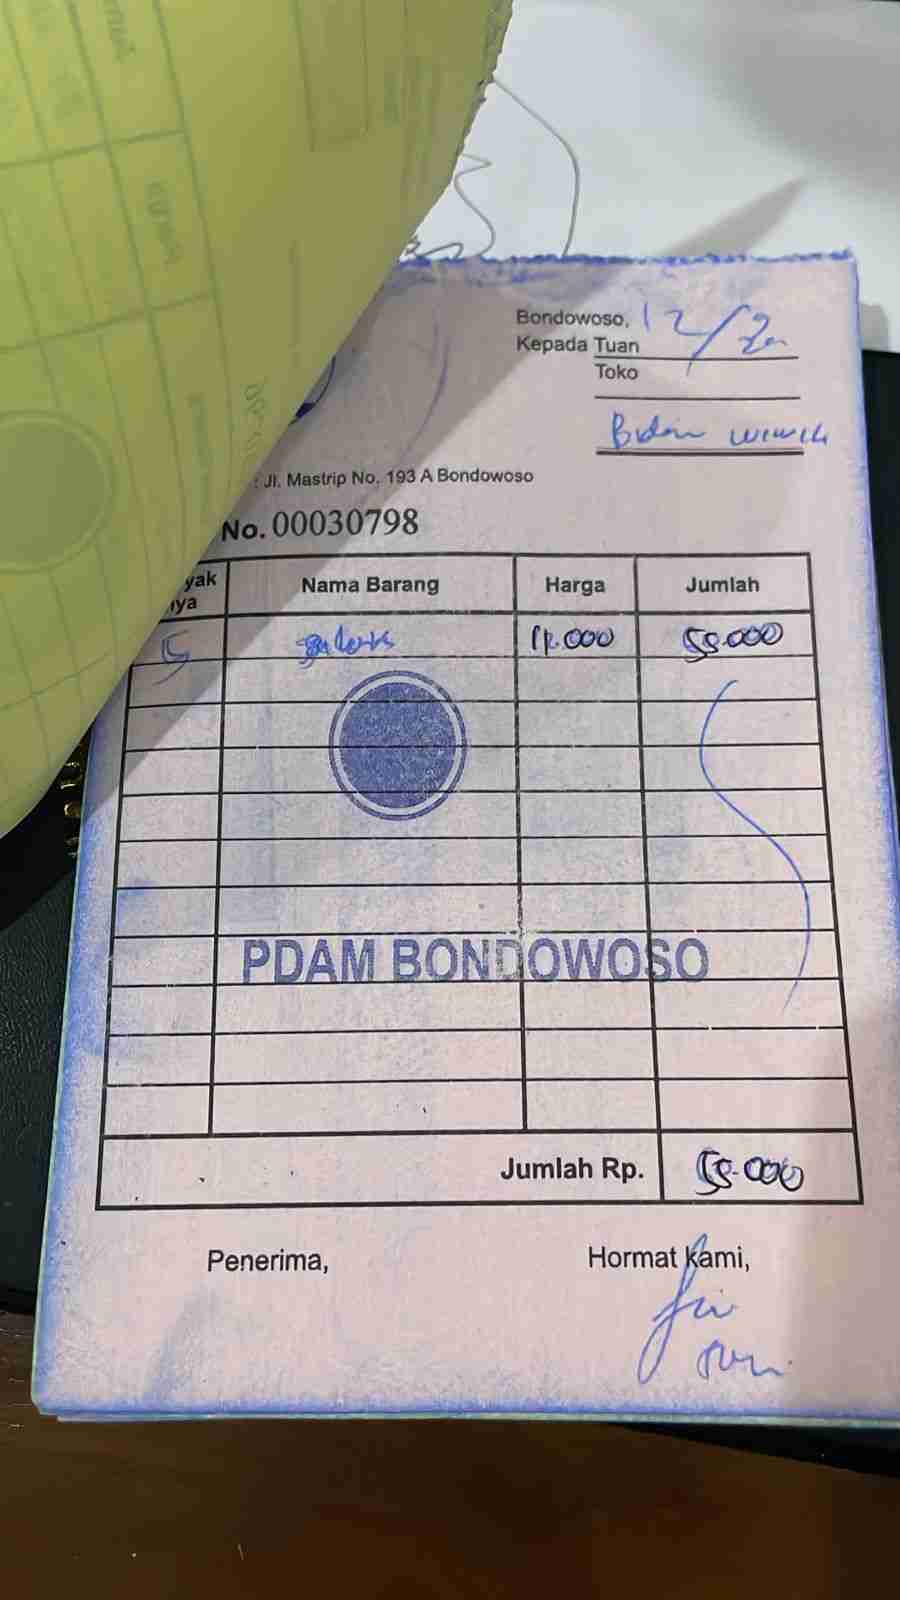 Bondowoso, 12/
Kepada Tuan
Toko
Bidan wiwik
: Jl. Mastrip No. 193 A Bondowoso
No. 00030798
yak nya Nama Barang Harga Jumlah
5 11.000 55.000
PDAM BONDOWOSO
Jumlah Rp. 55.000
Penerima, Hormat kami,